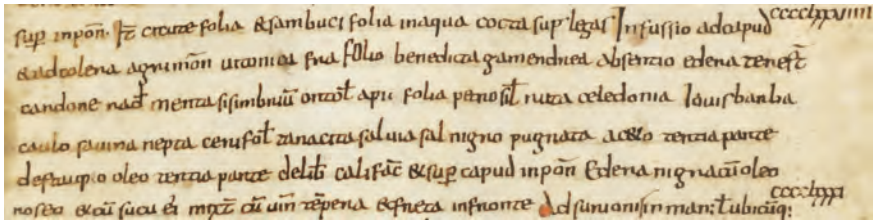 sup inpoñ. It cicute folia & sambuci folia in aqua cocta sup legas Infussio ad capud ccccLxxviiii
& ad colera agrimoñ uetonica fria folio benedicta gamendrea absentio edera tereſt
candone nad menta sisimbriu ortol apii folia petrosil ruta celedonia Iouis barba
caulo sauina nepta cerifol tanacita saluia sal nigro pugnata aceto tertia parte
de oleo tertia parte delib califac & sup capud inpoñ Edera nigra cu oleo
roseo & cu sucu ei mixt cu uin tepera & freta in fronte Ad surionis in man: t ubicuq: ccccLxxxi